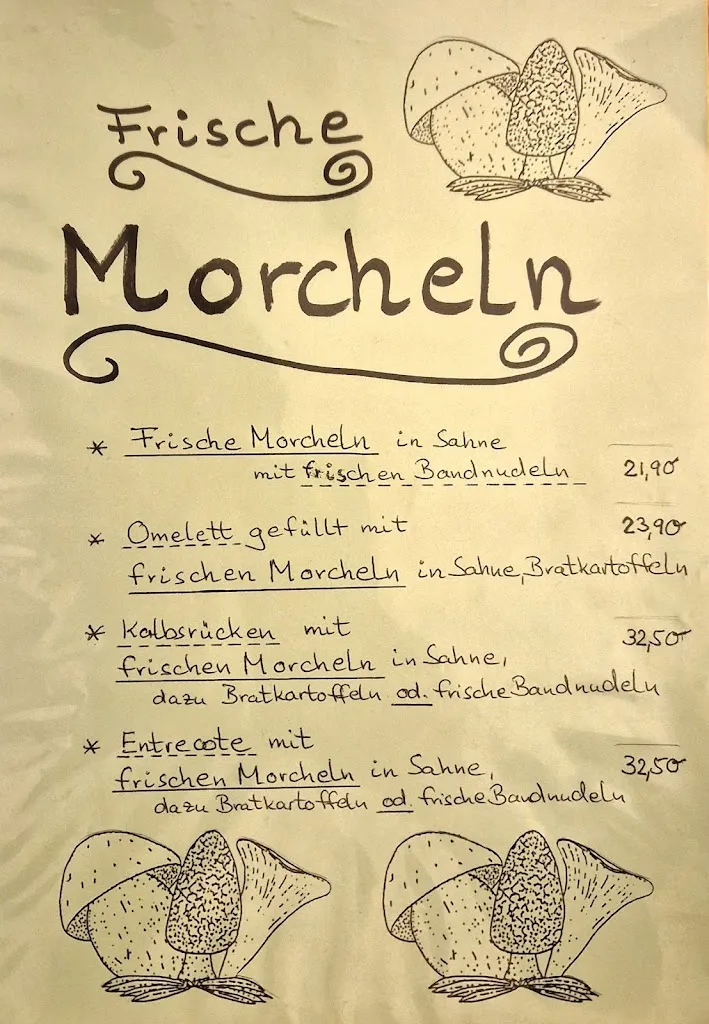 Frische
Morcheln
* Frische Morcheln in Sahne
mit frischen Bandnudeln 21,90
* Omelett gefüllt mit 23,90
frischen Morcheln in Sahne, Bratkartoffeln
* Kalbsrücken mit 32,50
frischen Morcheln in Sahne,
dazu Bratkartoffeln od. frische Bandnudeln
* Entrecote mit
frischen Morcheln in Sahne, 32,50
dazu Bratkartoffeln od. frische Bandnudeln